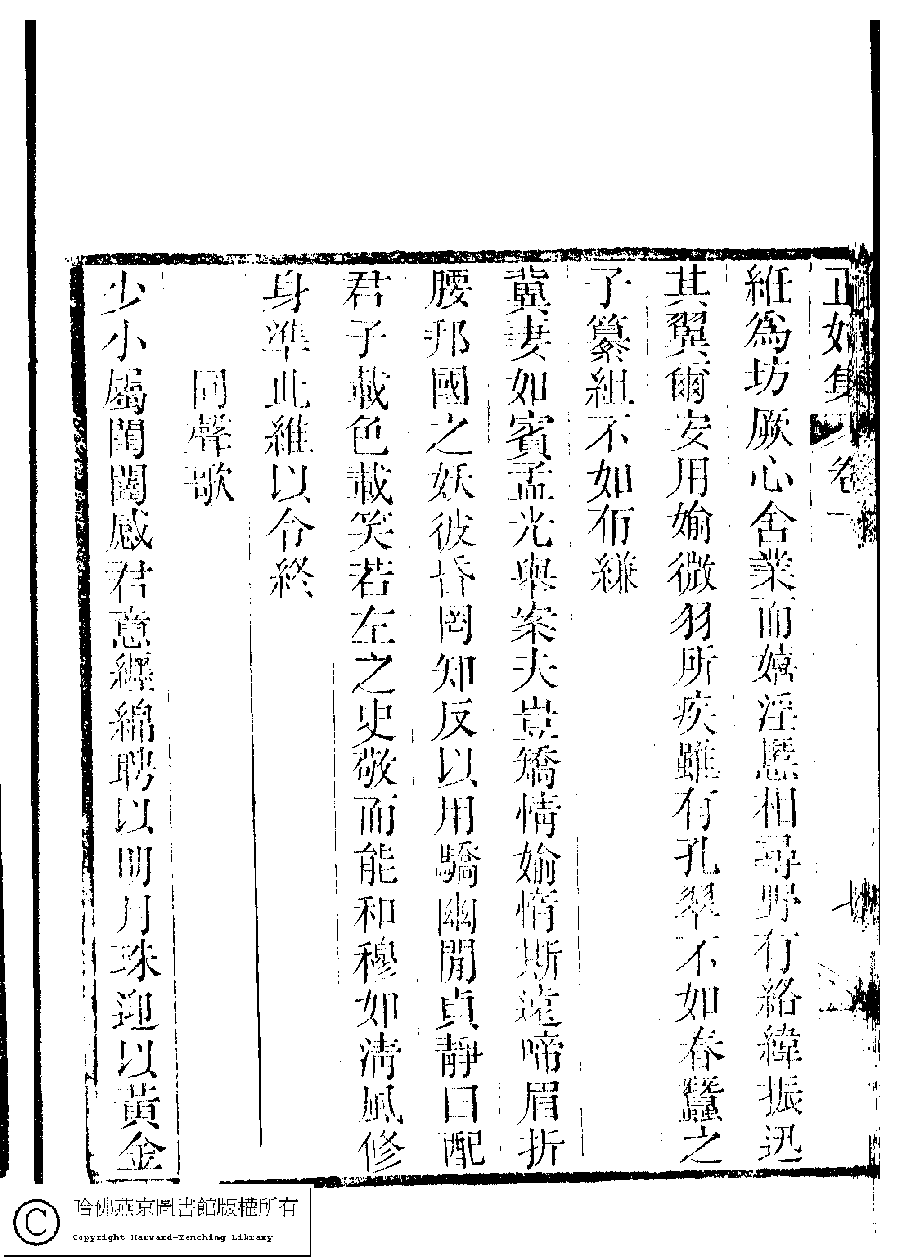 正始集 卷一
紝為坊厥心舍業而嬉淫慝相尋野有絡緯振迅
其翼爾安用媮微羽所疾雖有孔翠不如春蠶之
子纂組不如布縑
冀妻如賓孟光舉案夫豈矯情媮惰斯遠啼眉折
腰邦國之妖彼昏罔知反以用驕幽閒貞靜曰配
君子載色載笑若左之史敬而能和穆如清風修
身準此維以令終
同聲歌
少小屬閨闥感君意纏綿聘以明月珠迎以黃金
哈佛燕京圖書館版權所有
Copyright Harvard-Yenching Library